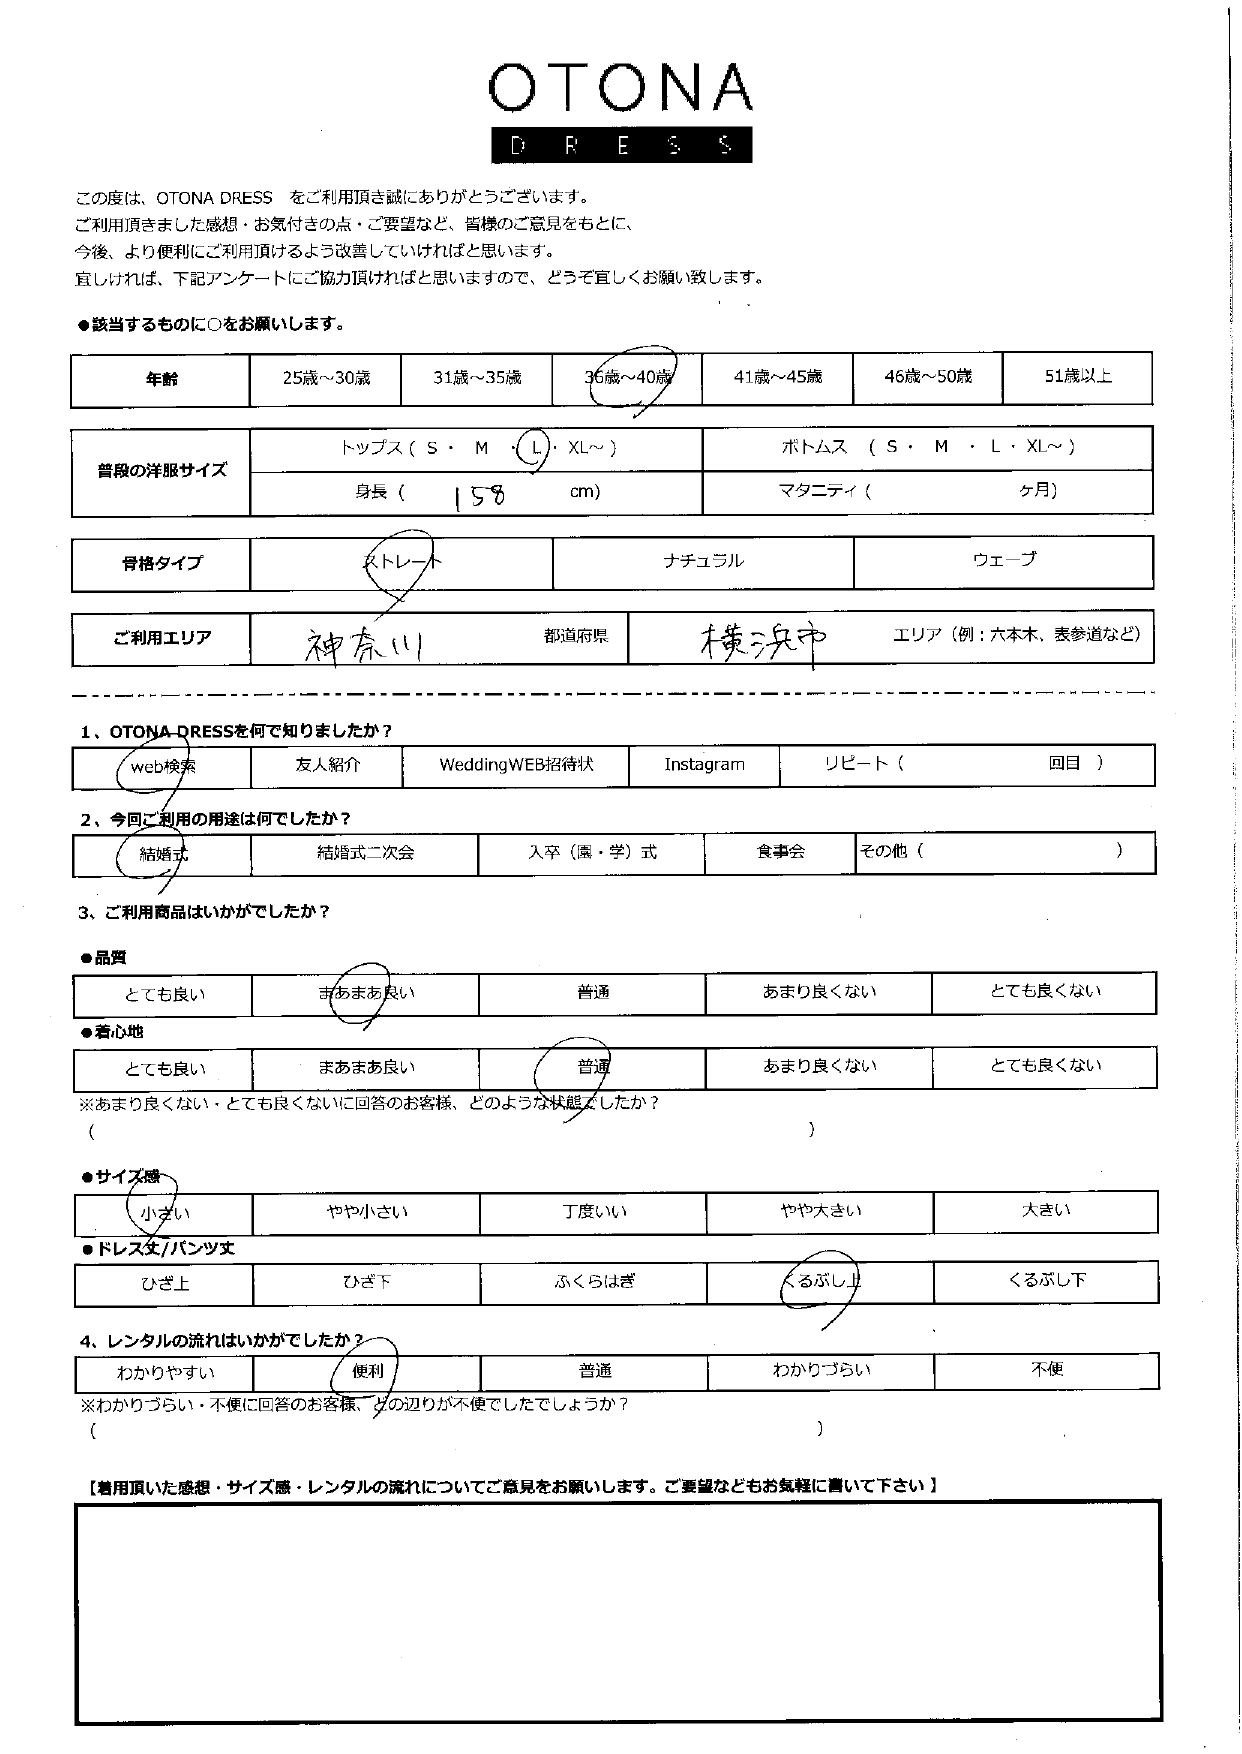 OTONA
DRESS
この度は、OTONA DRESS をご利用頂き誠にありがとうございます。
ご利用頂きました感想・お気付きの点・ご要望など、皆様のご意見をもとに、
今後、より便利にご利用頂けるよう改善していければと思います。
宜しければ、下記アンケートにご協力頂ければと思いますので、どうぞ宜しくお願い致します。
●該当するものに○をお願いします。
年齢 25歳～30歳 31歳～35歳 36歳～40歳 41歳～45歳 46歳～50歳 51歳以上
普段の洋服サイズ トップス ( S ・ M ・ L ・ XL～ ) ボトムス ( S ・ M ・ L ・ XL～ )
身長 ( 158 cm) マタニティ ( ケ月)
骨格タイプ ストレート ナチュラル ウェーブ
ご利用エリア 神奈川 都道府県 横浜市 エリア（例：六本木、表参道など）
1、OTONA DRESSを何で知りましたか？
web検索 友人紹介 WeddingWEB招待状 Instagram リピート（ 回目 ）
2、今回ご利用の用途は何でしたか？
結婚式 結婚式二次会 入卒（園・学）式 食事会 その他（ ）
3、ご利用商品はいかがでしたか？
●品質
とても良い まあまあ良い 普通 あまり良くない とても良くない
●着心地
とても良い まあまあ良い 普通 あまり良くない とても良くない
※あまり良くない・とても良くないに回答のお客様、どのような状態でしたか？
( )
●サイズ感
小さい やや小さい 丁度いい やや大きい 大きい
●ドレス丈/パンツ丈
ひざ上 ひざ下 ふくらはぎ くるぶし上 くるぶし下
4、レンタルの流れはいかがでしたか？
わかりやすい 便利 普通 わかりづらい 不便
※わかりづらい・不便に回答のお客様、どの辺りが不便でしたでしょうか？
( )
【着用頂いた感想・サイズ感・レンタルの流れについてご意見をお願いします。ご要望などもお気軽に書いて下さい】